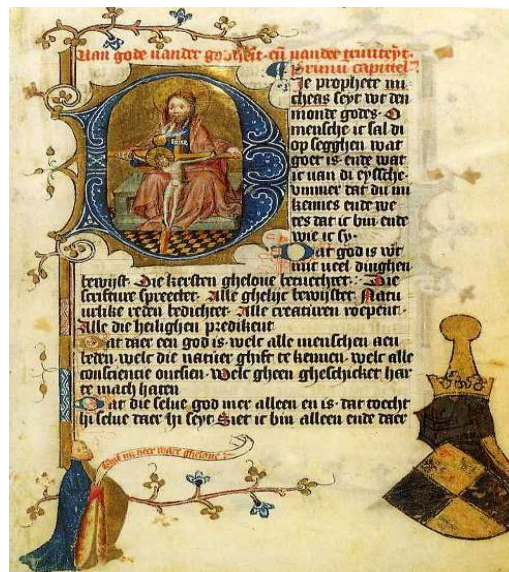 Van gode vander godheit en vander triniteyt.
Primum capittel
Die prophete mi
cheas seyt wt den
monde godes. O
mensche ic sal di
op segghen wat
goet is ende wat
ic van di eyssche.
ummer dat du mi
kennes ende we
tes dat ic bin ende
wie ic sy.
Dat god is wt
mit veel dinghen
bewijst. Die kersten gheloue betuechtet. Die
scrifture spreectet. Alle ghelijc bewijstet Natu
urlike reden bedichtet. Alle creaturen roepent.
Alle die heilighen predikent
Dat daer een god is. welc alle menschen aen
beden. welc die natuer ghift te kennen. welc alle
conscientie ontsien. Welc gheen gheschicket har
te mach haten
Dat die selue god mer alleen en is. dat toecht
hi selue daer hi seyt. Siet ic bin alleen ende daer
mi neer ware gheloue